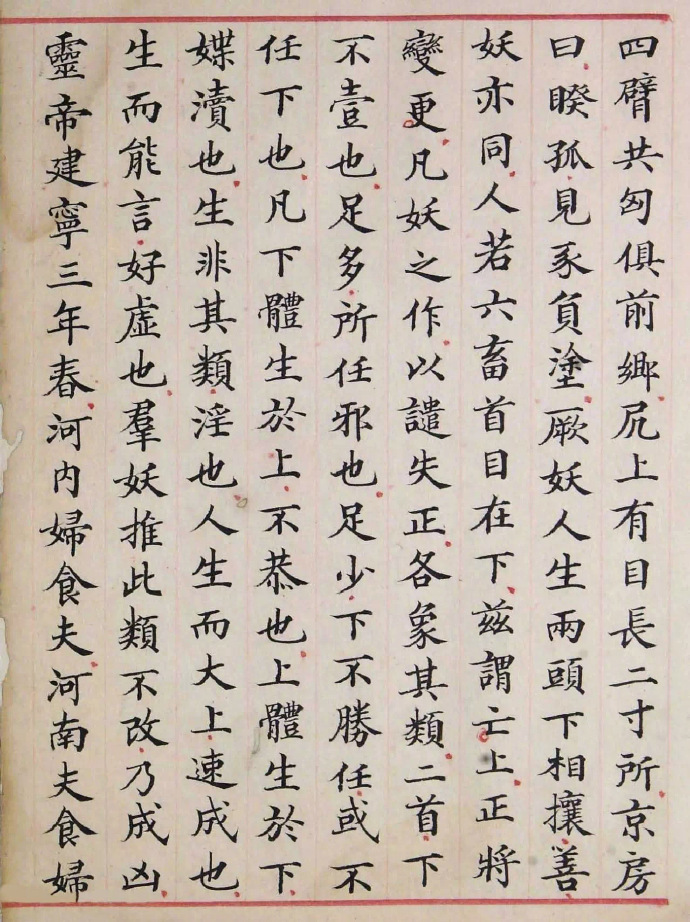 四臂共匈俱前鄉尻上有目長二寸所京房
曰睽孤見豕負塗厥妖人生兩頭下相攘善
妖亦同人若六畜首目在下茲謂亡上正將
變更凡妖之作以譴失正各象其類二首下
不壹也足多所任邪也足少下不勝任或不
任下也凡下體生於上不恭也上體生於下
媟瀆也生非其類淫也人生而大上速成也
生而能言好虛也羣妖推此類不改乃成凶
靈帝建寧三年春河內婦食夫河南夫食婦